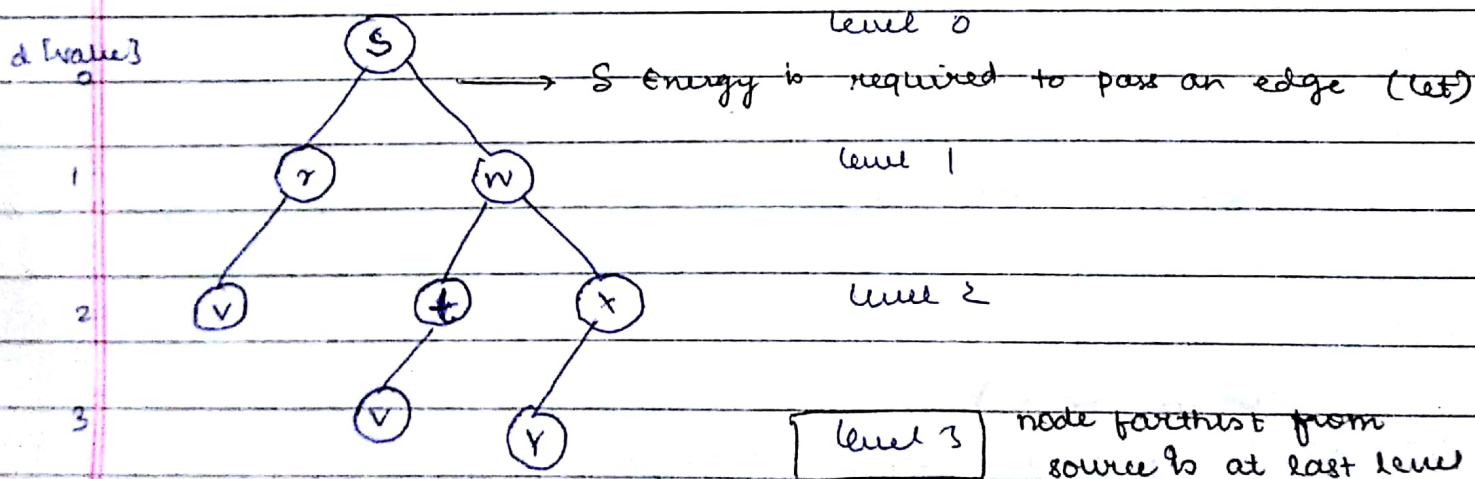 S
level 0
d [value]
0
→ S Energy is required to pass an edge (let)
1
r
w
level 1
2
v
t
x
level 2
3
v
Y
level 3
node farthest from
source is at last level